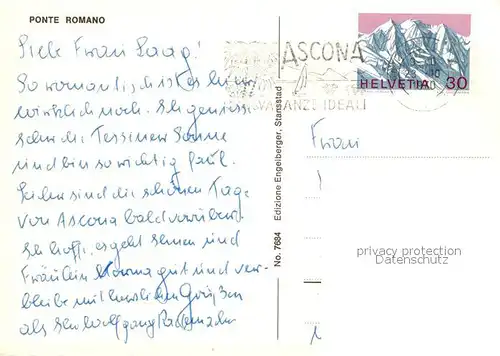 PONTE ROMANO
Liebe Frau Laag!
So romantisch ist es hier
wirklich noch. Ich geniesse
sehr die Tessiner Sonne
und bin so richtig faul.
Leider sind die schönen Tage
von Ascona bald vorüber.
Ich hoffe, es geht Ihnen und
Fräulein Mama gut und ver-
bleibe mit herzlichen Grüßen
als Ihr Wolfgang
No. 7684 Edizione Engelberger, Stansstad
ASCONA
VACANZE IDEALI
HELVETIA 30
Frau
privacy protection
Datenschutz